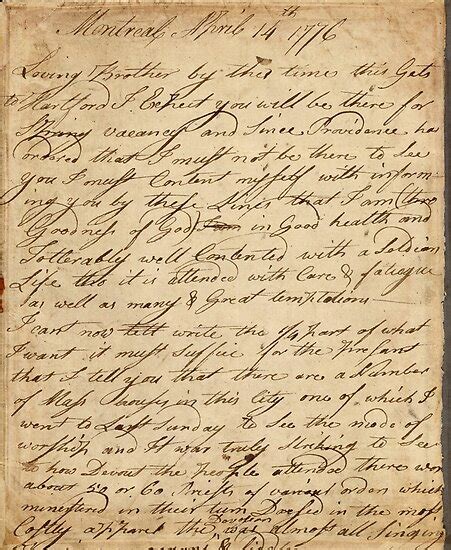 Montreal April 14th 1776
Loving Brother by the time this Gets
to Hartford I Expect you will be there for
Spring vacancy and Since Providance has
ordered that I must not be there to See
you I must Content myself with inform-
ing you by these Lines that I am (thro
Goodness of God I am in Good health and
Tollerably well Contented with a Soldiers
Life tho it is attended with Care & fatigue
as well as many & Great temptations
I cant now tell write the 1/4 part of what
I want it must suffice for the Presant
that I tell you that there are a Number
of Mass houses in this City one of which I
went to Last Sunday to See the mode of
worship and It was truly Striking to See
to how Devout the People attended there wor
about 50 or 60 Priests of various order which
ministered in their turn Dressed in the most
Costly apparel the Devotion was almost all Singing